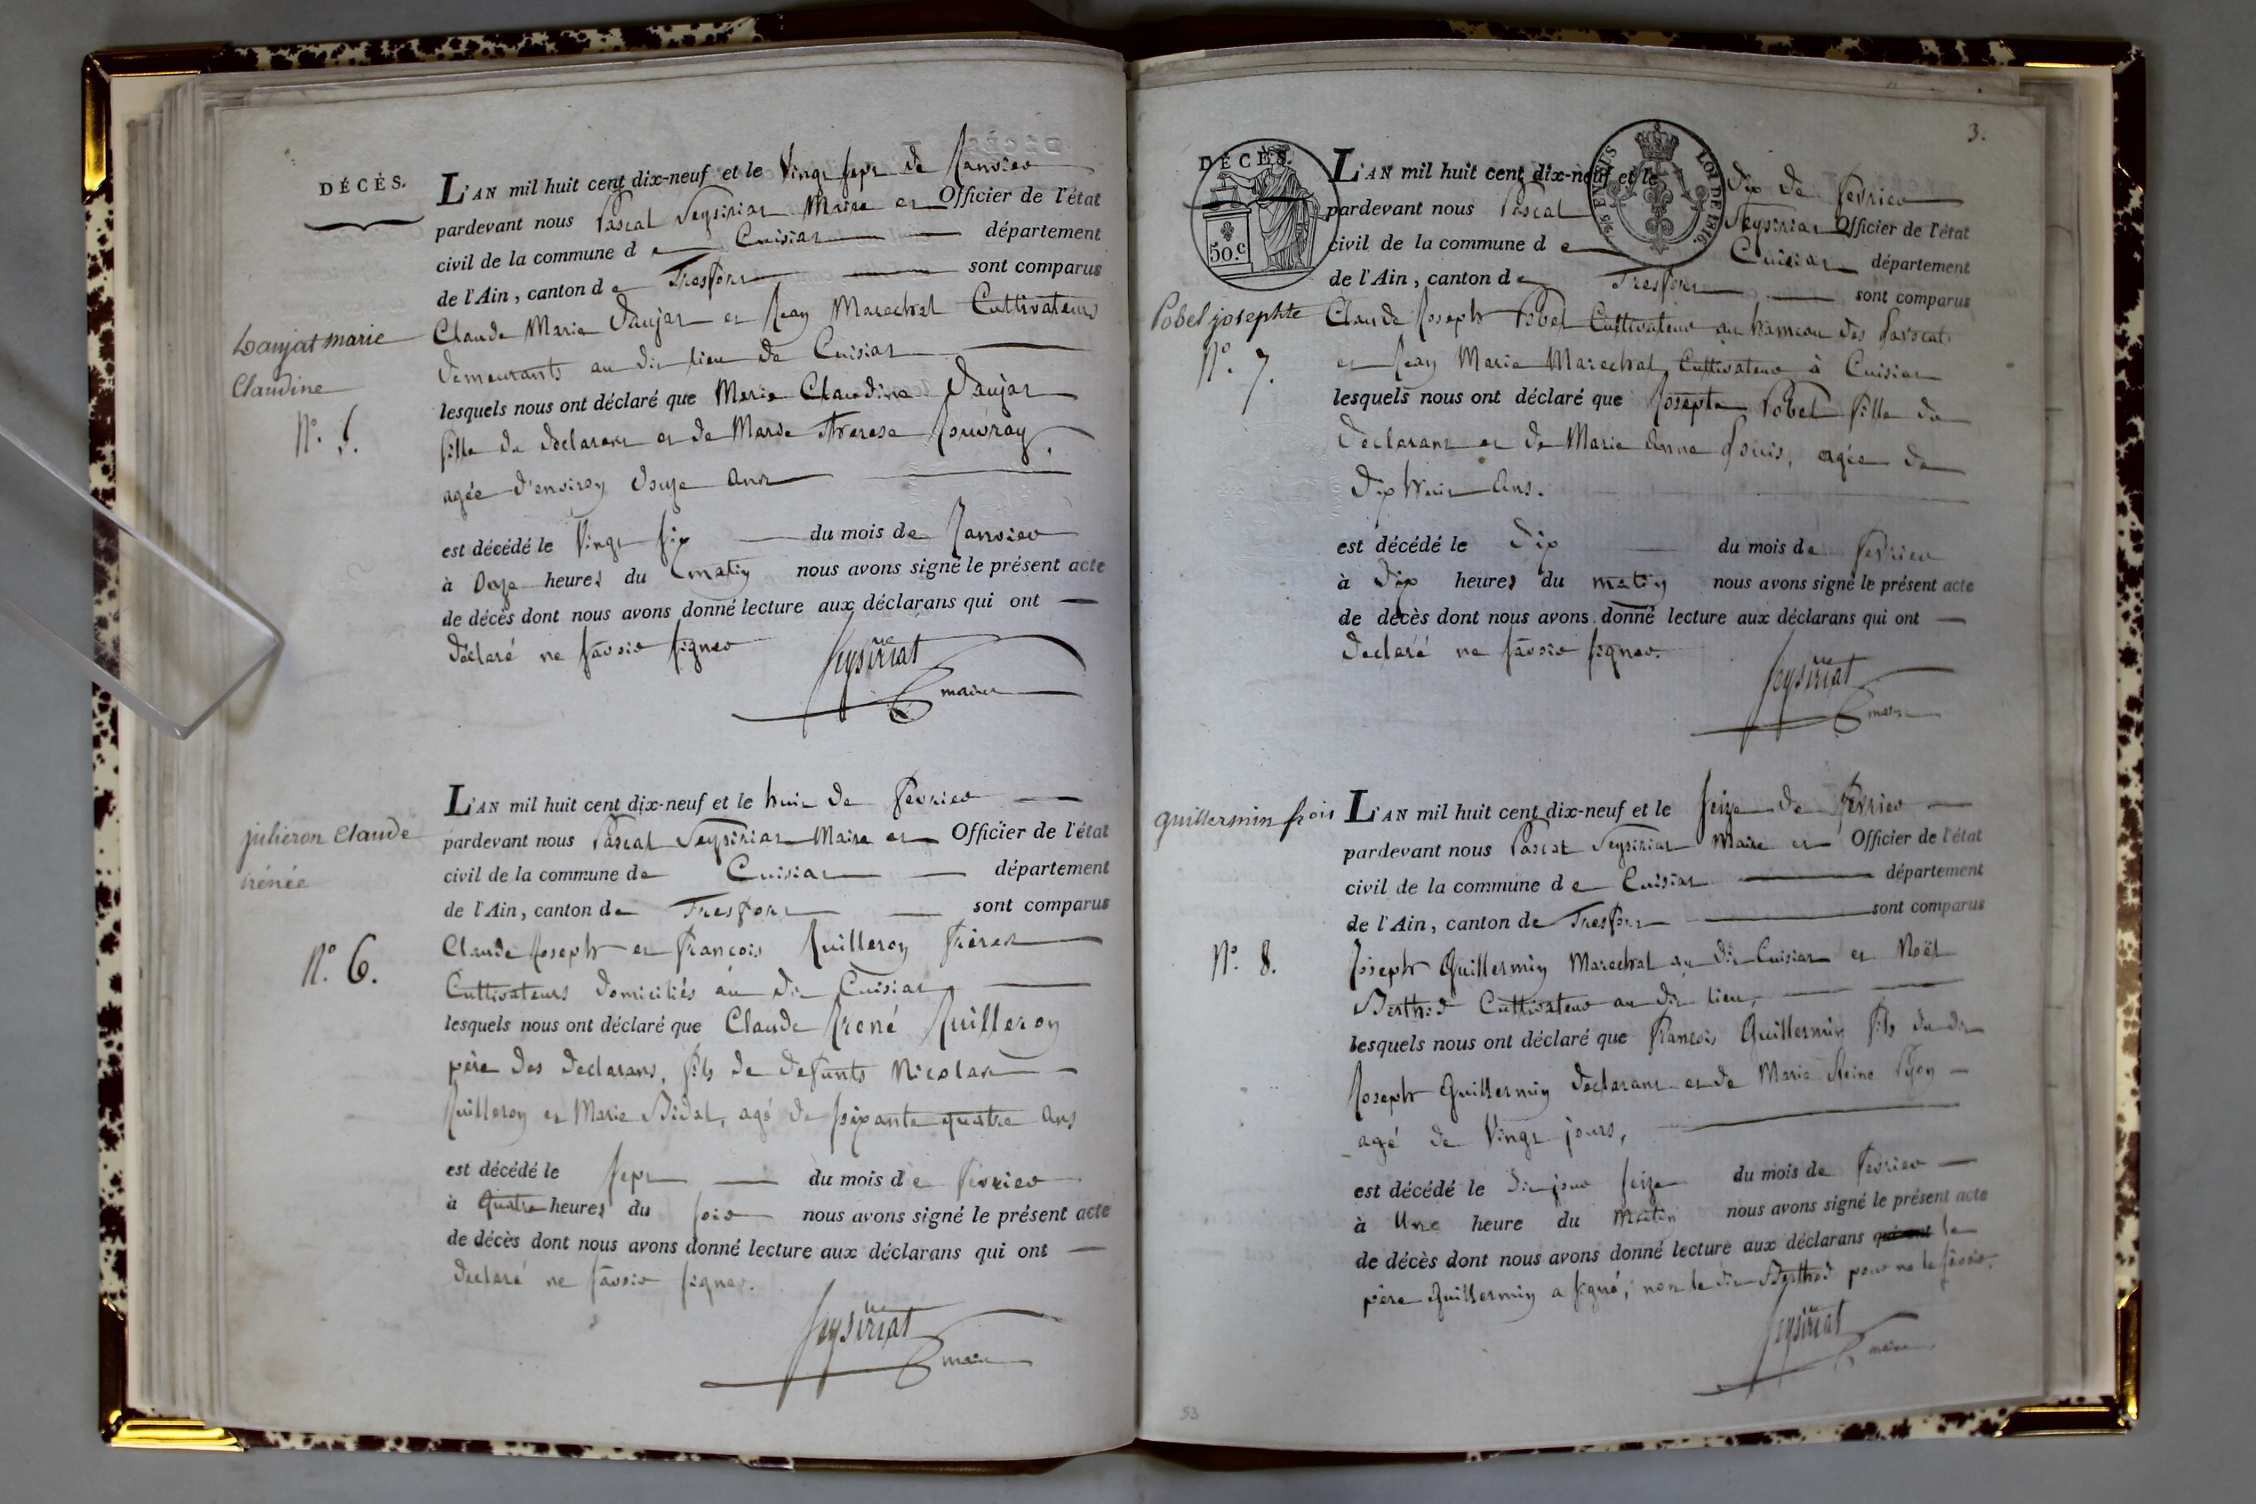 DÉCÈS.
L'AN mil huit cent dix-neuf et le Vingt sept de Janvier
pardevant nous Pascal Seysiriat Maire et Officier de l'état
civil de la commune de Cuisiat département
de l'Ain, canton de Treffort sont comparus
Claude Marie Daujat et Jean Marechal Cultivateurs
demeurants au dit lieu de Cuisiat
lesquels nous ont déclaré que Marie Claudine Daujat
fille du declarant et de Marie Therese
agée d'environ douze ans
est décédé le Vingt six du mois de Janvier
à onze heures du matin nous avons signé le présent acte
de décès dont nous avons donné lecture aux déclarans qui ont
déclaré ne savoir signer
Seysiriat
maire
Danjat marie
Claudine
N.º 5.
L'AN mil huit cent dix-neuf et le huit de fevrier
pardevant nous Pascal Seysiriat Maire et Officier de l'état
civil de la commune de Cuisiat département
de l'Ain, canton de Treffort sont comparus
Claude Joseph et François Juilleron frères
Cultivateurs domiciliés au dit Cuisiat
lesquels nous ont déclaré que Claude Irené Juilleron
père des declarans, fils de defunts Nicolas
Juilleron et Marie Bidal, agé de soixante quatre ans
est décédé le sept du mois de fevrier
à quatre heures du soir nous avons signé le présent acte
de décès dont nous avons donné lecture aux déclarans qui ont
declaré ne savoir signer.
Seysiriat
maire
julieron Claude
irénée
N.º 6.
3.
DÉCÈS.
50.C
TIMBRE ROYAL
LOI DE 1816.
L'AN mil huit cent dix-neuf et le dix de fevrier
pardevant nous Pascal Seysiriat Officier de l'état
civil de la commune de Cuisiat département
de l'Ain, canton de Treffort sont comparus
Claude Joseph Pobel Cultivateur au hameau des
et Jean Marie Marechal Cultivateur à Cuisiat
lesquels nous ont déclaré que Josepte Pobel fille du
declarant et de Marie Anne agée de
dix huit ans.
est décédé le dix du mois de fevrier
à dix heures du matin nous avons signé le présent acte
de décès dont nous avons donné lecture aux déclarans qui ont
declaré ne savoir signer.
Seysiriat
maire
Pobel josephte
N.º 7.
L'AN mil huit cent dix-neuf et le seize de fevrier
pardevant nous Pascal Seysiriat Maire et Officier de l'état
civil de la commune de Cuisiat département
de l'Ain, canton de Treffort sont comparus
Joseph Guillermin Marechal au dit Cuisiat et Noël
Berthod Cultivateur au dit lieu,
lesquels nous ont déclaré que François Guillermin fils du dit
Joseph Guillermin declarant et de Marie Reine
agé de vingt jours,
est décédé le dit jour seize du mois de fevrier
à une heure du matin nous avons signé le présent acte
de décès dont nous avons donné lecture aux déclarans qui ont le
père Guillermin a signé; non le dit Berthod pour ne le savoir.
Seysiriat
maire
guillermin frois
N.º 8.
53